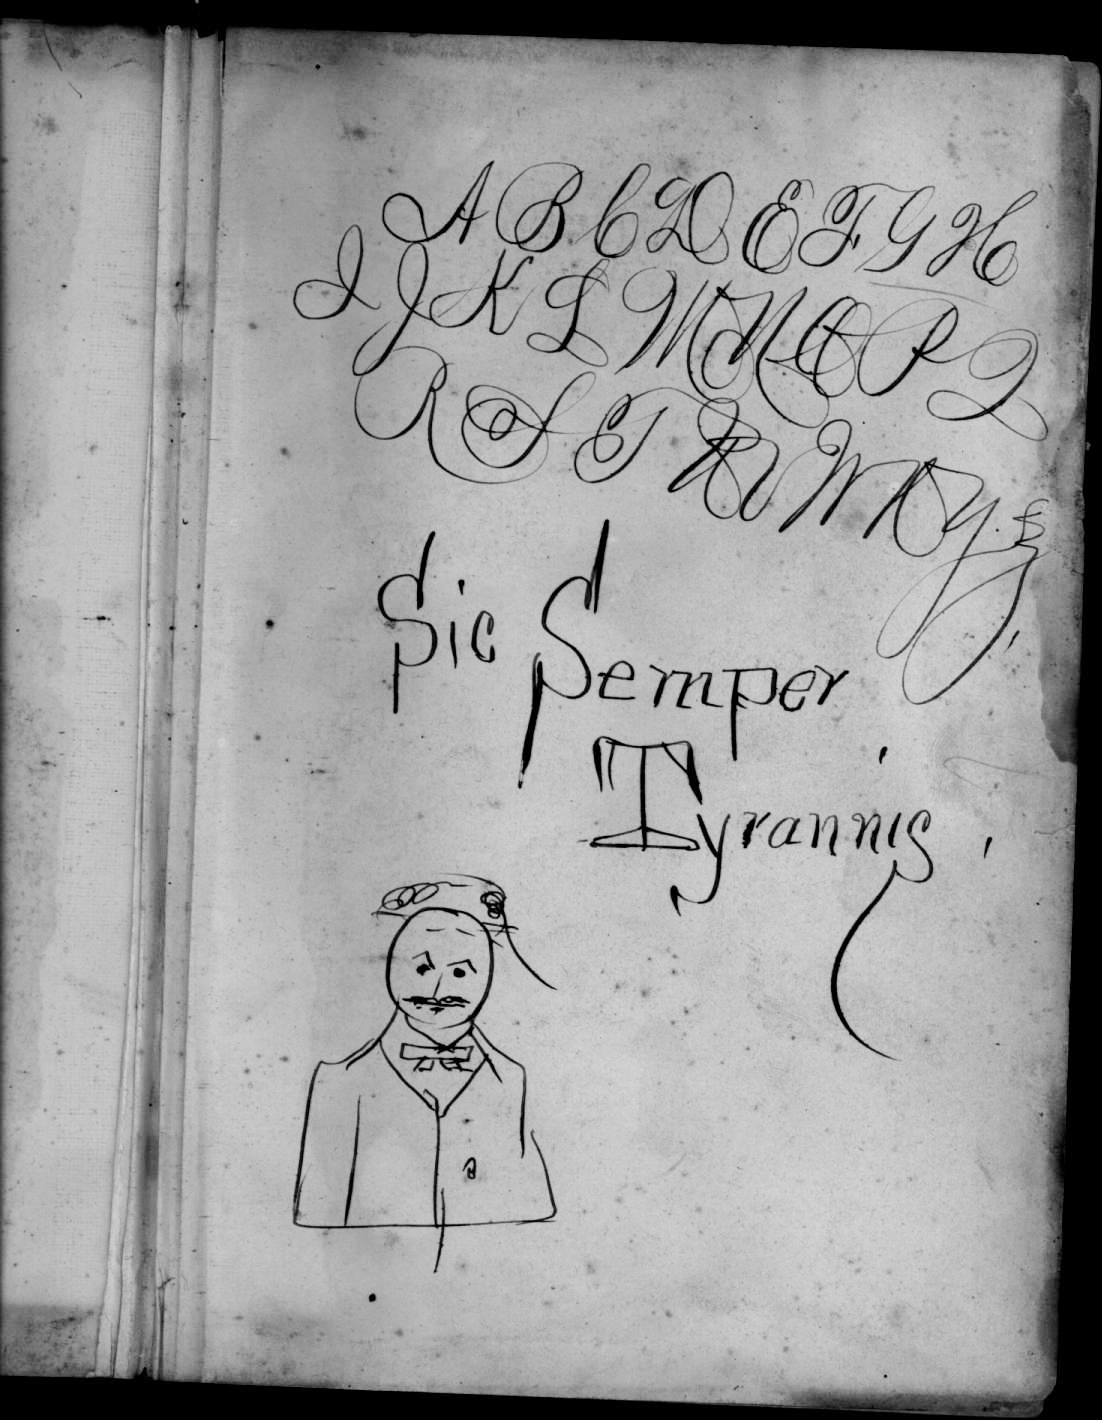 A B C D E F G H
I J K L M N O P Q
R S T U V W X Y &
Z
Sic Semper
Tyrannis.